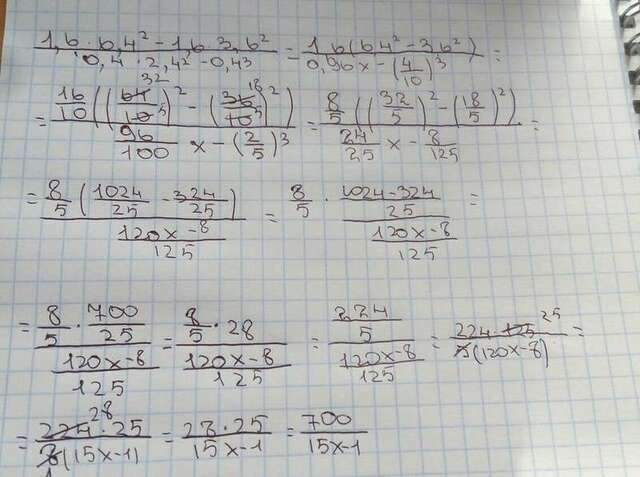 (1,6 · 6,4² - 1,6 · 3,6²)/(0,4 · 2,4² - 0,43) = (1,6(6,4² - 3,6²))/(0,96x - (4/10)³) =
= (16/10((64/10)² - (36/10)²))/(96/100 x - (2/5)³) = (8/5((32/5)² - (18/5)²))/(24/25 x - 8/125) =
= (8/5(1024/25 - 324/25))/((120x-8)/125) = (8/5 · (1024-324)/25)/((120x-8)/125) =
= (8/5 · 700/25)/((120x-8)/125) = (8/5 · 28)/((120x-8)/125) = (224/5)/((120x-8)/125) = (224·125 25)/(5(120x-8)) =
= (224 28·25)/(8(15x-1)) = (28·25)/(15x-1) = 700/(15x-1)